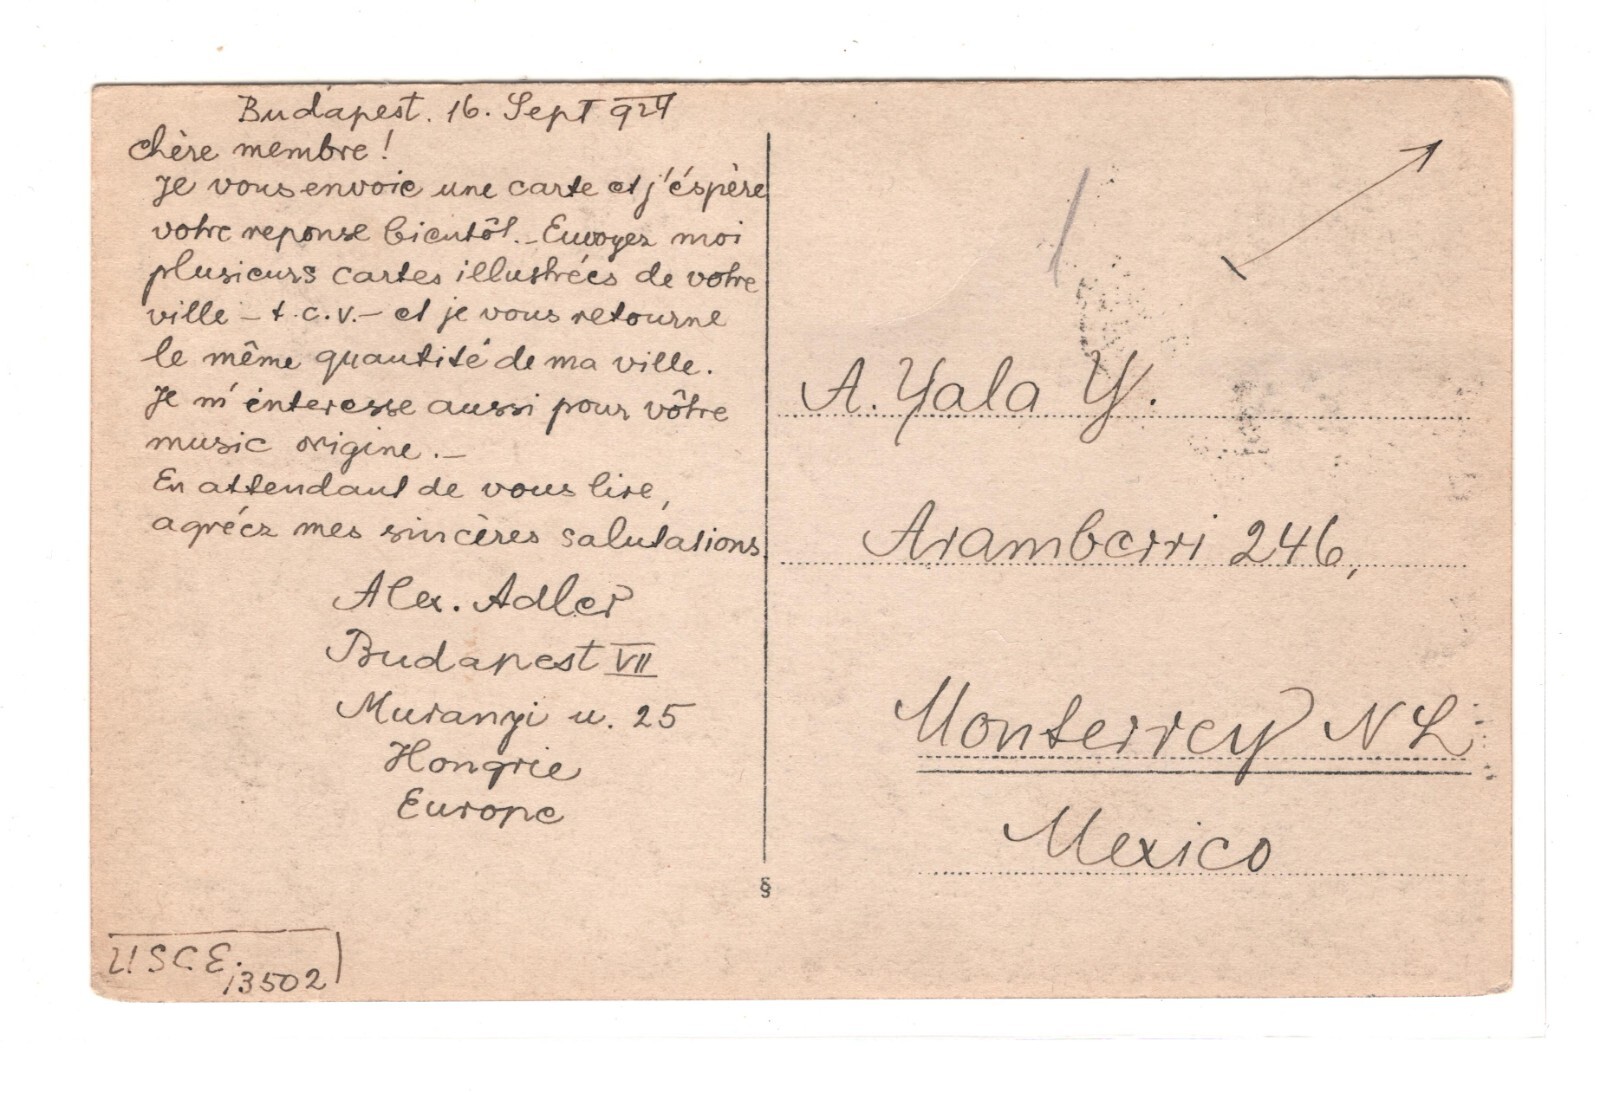 Budapest. 16. Sept 924
chère membre!
Je vous envoie une carte et j'éspère
votre reponse bientôt._ Envoyez moi
plusieurs cartes illustrées de votre
ville – t.c.v. – et je vous retourne
le même quantité de ma ville.
Je m'énteresse aussi pour vôtre
music origine._
En attendant de vous lire,
agréez mes sincères salutations.
Alex. Adler
Budapest VII
Muranyi u. 25
Hongrie
Europe
§
USCE.
13502
A. Yala Y.
Aramberri 246,
Monterrey N L
Mexico